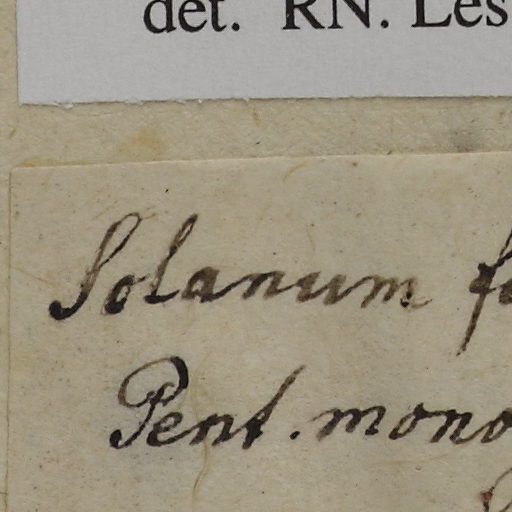 det. RN. Les
Solanum f
Pent. mono